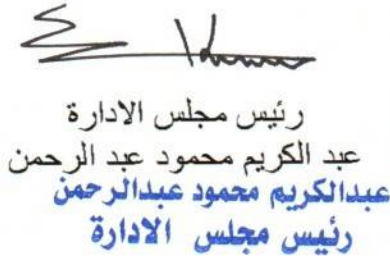 رئيس مجلس الادارة
عبد الكريم محمود عبد الرحمن
عبدالكريم محمود عبدالرحمن
رئيس مجلس الادارة